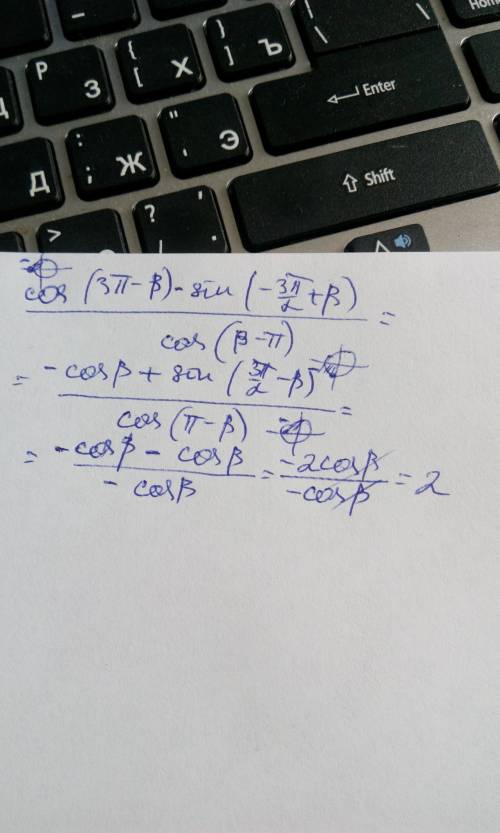 Home
Р З
{ [ Х
} ] Ъ
| \
\
Enter
Д
: ; Ж
" ' Э
Shift
>
? / , .
cos (3π-β) - sin (-3π/2+β) / cos (β-π) =
= -cosβ + sin (3π/2-β) / cos (π-β) =
= -cosβ - cosβ / -cosβ = -2cosβ / -cosβ = 2